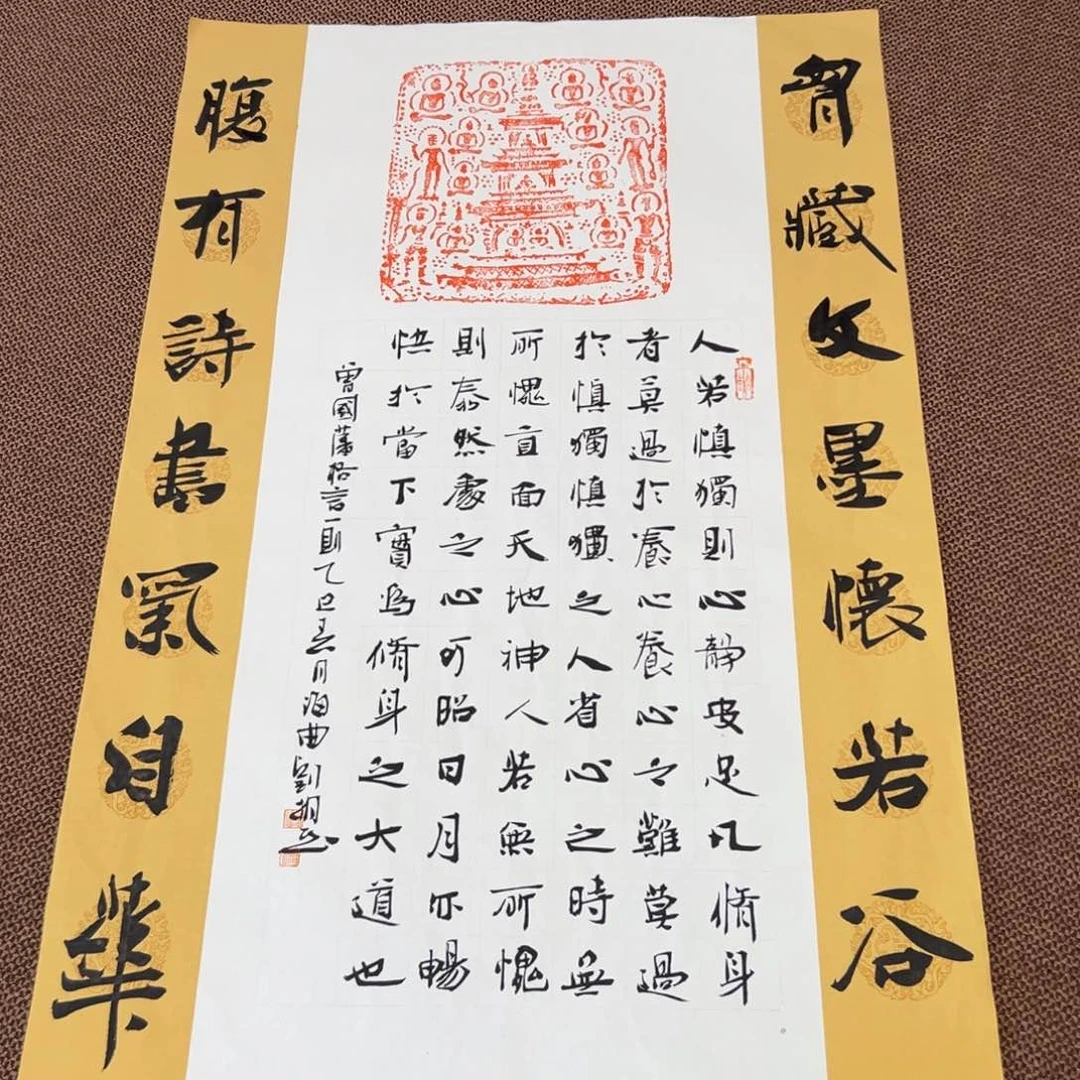 胷藏文墨懷若谷
人若慎獨則心静安足凡脩身
者莫過於養心養心之難莫過
於慎獨慎獨之人省心之時無
所愧直面天地神人若無所愧
則泰然處之心可昭日月亦暢
快於當下實為脩身之大道也
曾國藩格言一則乙巳春月海曲劉
腹有詩書氣自華